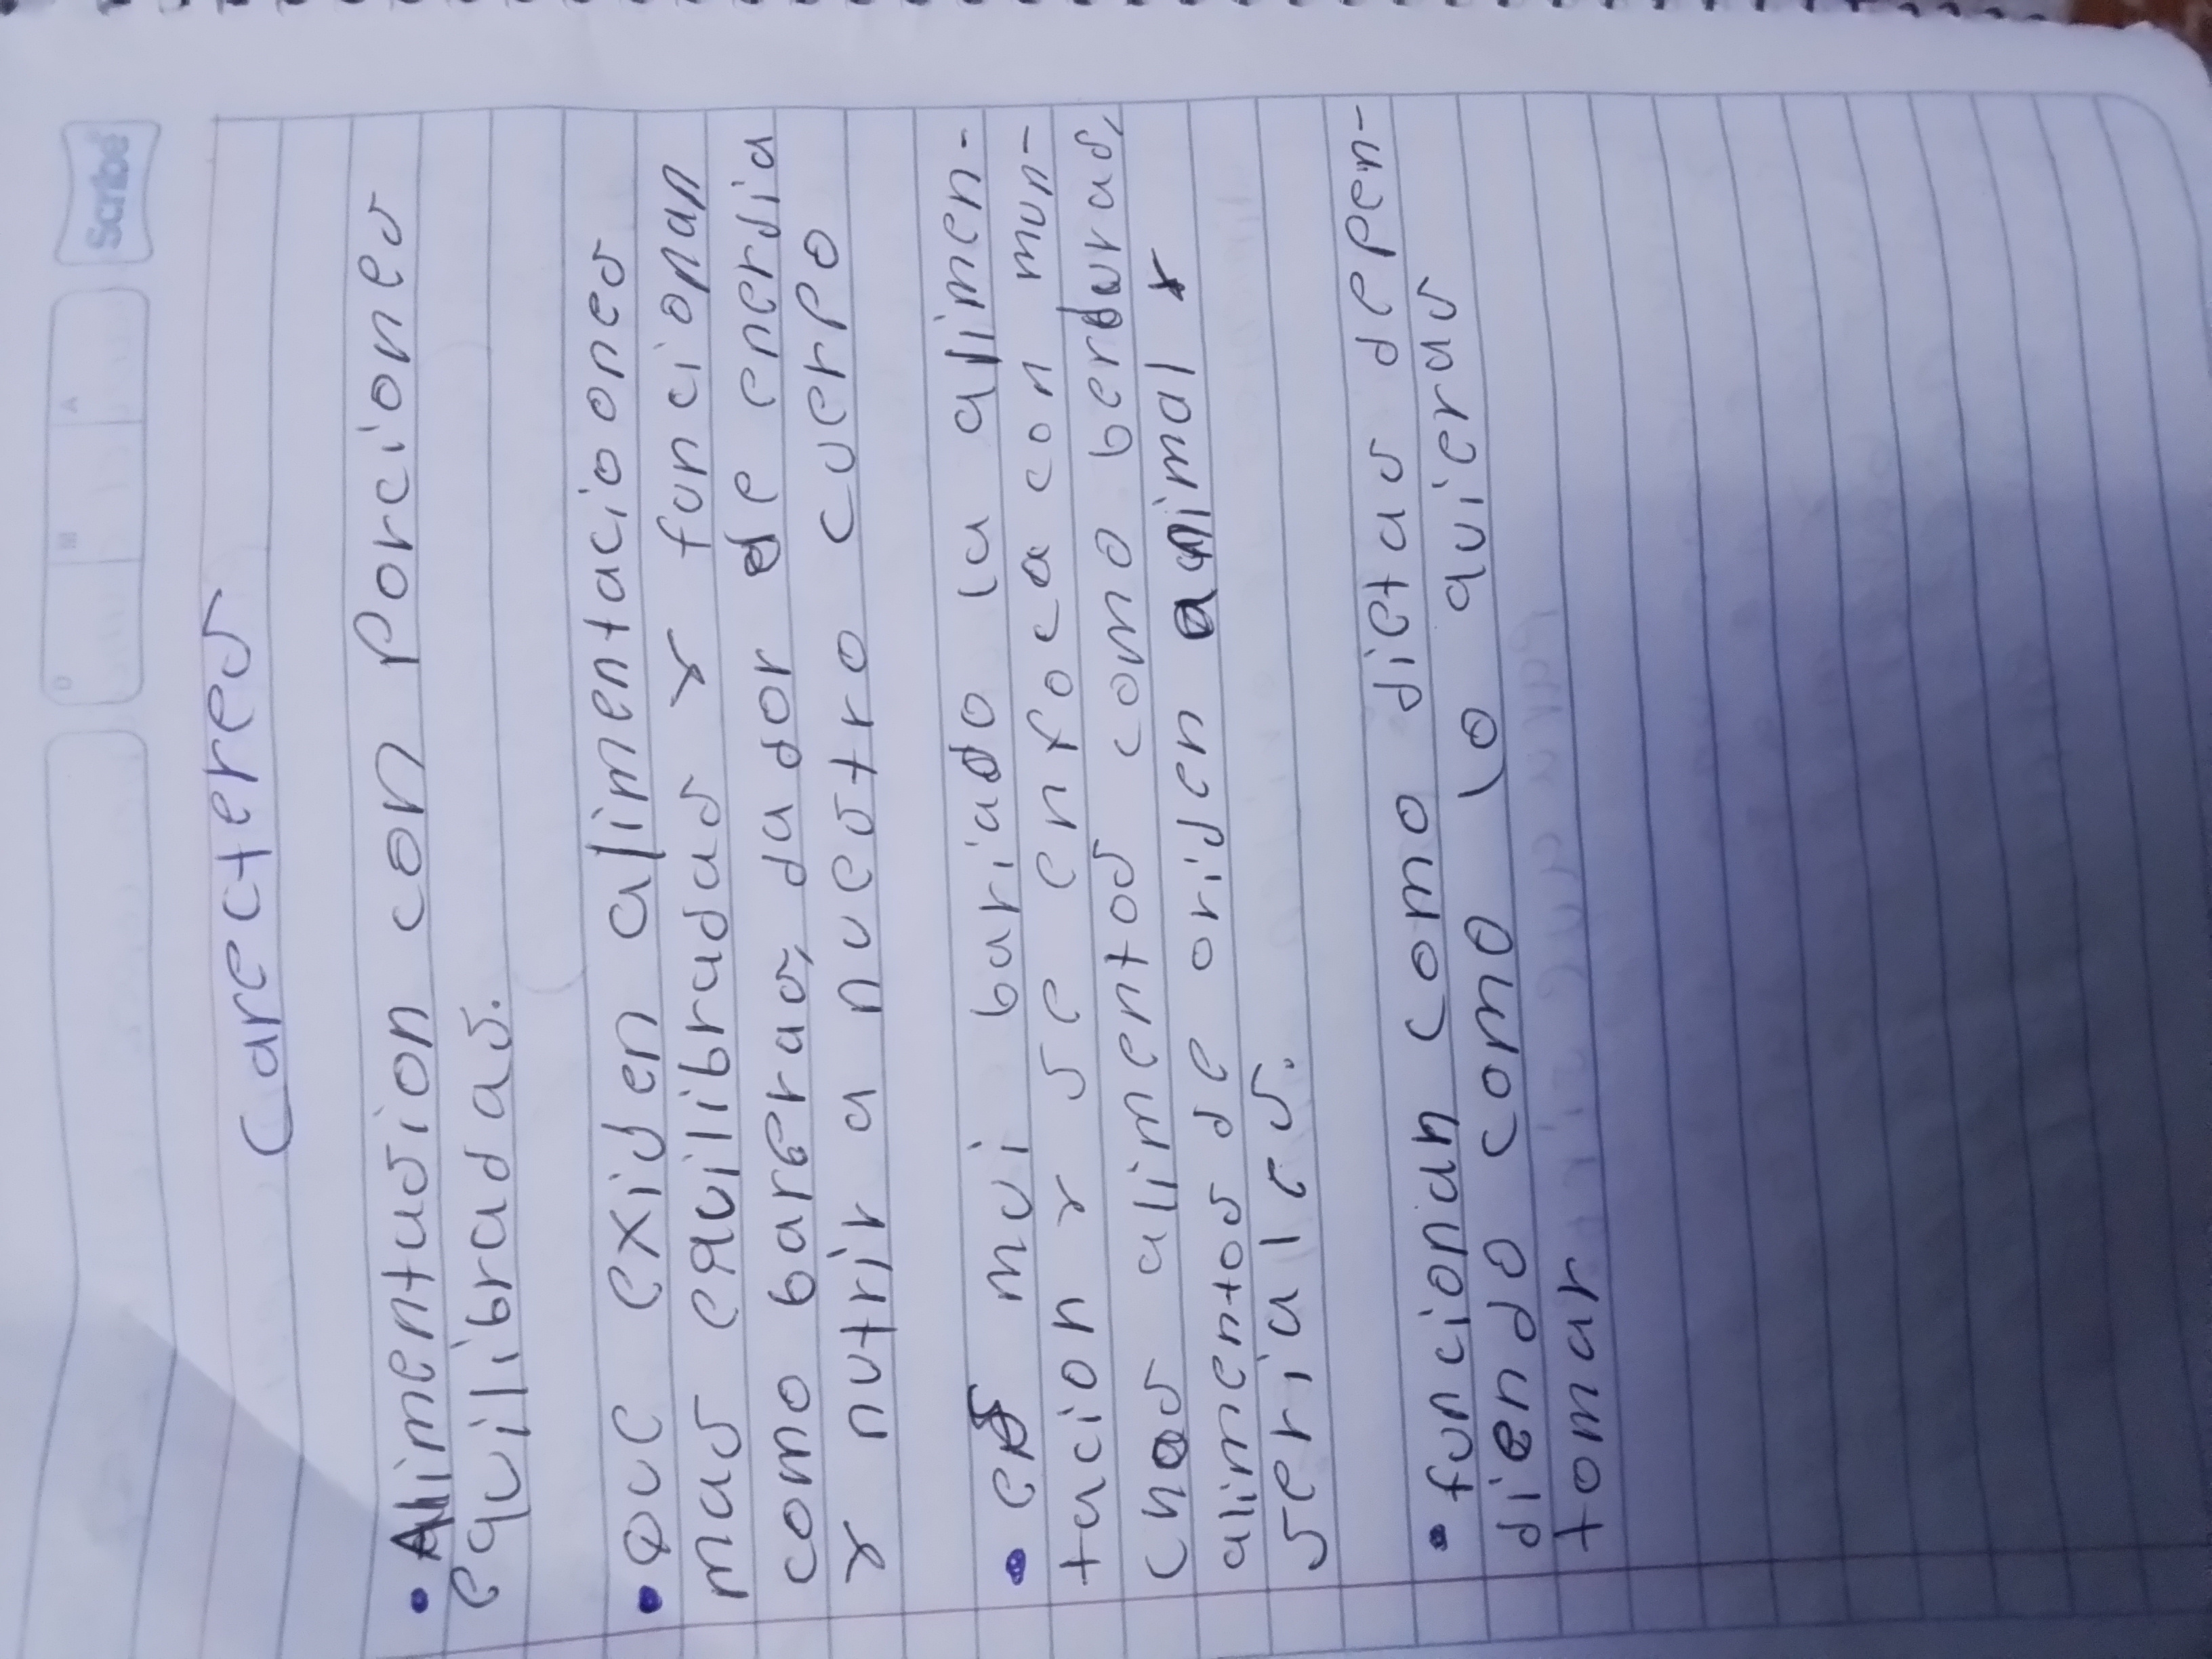 Scribe
D M A
Carecteres
• Alimentasion con Porciones
equilibradas.
• que exijen alimentaciones
mas equilibradas y funcionan
como bareras, dador de enerjia
y nutrir a nuestro cuerpo
• es mui bariado la alimen-
tacion y se enfoca con mun-
chos alimentos como berduras,
alimentos de orijen animal y
seriales.
• funcionan como dietas depen-
diendo como lo quieras
tomar